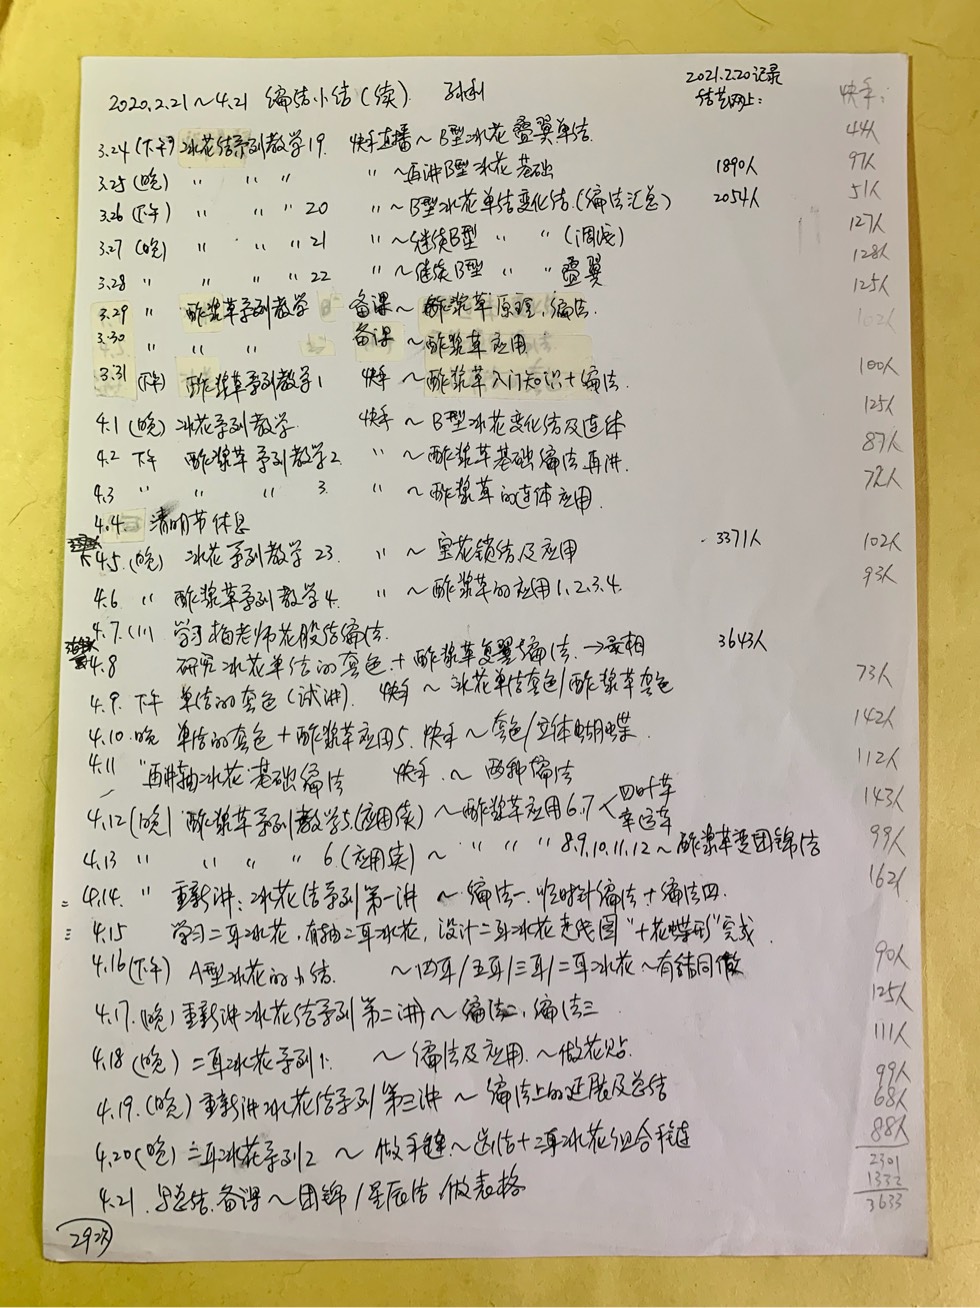 2020.2.21～4.21 编结小结(续) 2021.2.20记录
结艺网上: 快手:
3.24(下午)冰花结系列教学19. 快手直播～B型冰花叠翼单结. 44人
3.25(晚) 〃 〃 〃 〃～再讲B型冰花基础 1890人 97人
3.26(下午) 〃 〃 〃 20 〃～B型冰花单结变化结.(编法汇总) 2054人 51人
3.27(晚) 〃 〃 〃 21 〃～继续B型 〃 〃 127人
3.28 〃 〃 〃 〃 22 〃～继续B型 〃 〃 叠翼 128人
125人
3.29 〃 酢浆草系列教学 备课～酢浆草原理.编法. 102人
3.30 〃 〃 〃 备课～酢浆草应用
3.31(下午) 酢浆草系列教学1 快手～酢浆草入门知识+编法. 100人
4.1(晚)冰花系列教学. 快手～B型冰花变化结及连体 125人
4.2 下午 酢浆草系列教学2 〃～酢浆草基础编法再讲. 87人
4.3 〃 〃 〃 3. 〃～酢浆草的连体应用. 72人
4.4. 清明节休息
4.5.(晚) 冰花系列教学23. 〃～宝花锁结及应用 3371人 102人
4.6 〃 酢浆草系列教学4. 〃～酢浆草的应用1.2.3.4. 93人
4.7. 学习梅老师花股结编法.
4.8 研究冰花单结的套色+酢浆草复翼编法.→ 3643人
4.9. 下午 单结的套色(试讲). 快手～冰花单结套色/酢浆草套色 73人
4.10.晚 单结的套色+酢浆草应用5. 快手～套色/立体蝴蝶. 142人
4.11 再讲轴冰花基础编法 快手.～两种编法 112人
4.12(晚)酢浆草系列教学5.(应用续)～酢浆草应用6.7 四叶草 幸运草 143人
4.13 〃 〃 〃 〃 6(应用续)～ 〃 〃 〃 8.9.10.11.12～酢浆草变团锦结 99人
4.14. 〃 重新讲:冰花结系列第一讲 ～编法一.顺时针编法+编法四. 162人
4.15 学习二耳冰花.有轴二耳冰花,设计二耳冰花走线图"十花蝶形"完成.
4.16(下午) A型冰花的小结. ～四耳/五耳/三耳/二耳冰花～有结同做 90人
4.17.(晚)重新讲冰花结系列第二讲～编法二.编法三 125人
4.18(晚)二耳冰花系列1. ～编法及应用.～做花贴. 111人
4.19.(晚)重新讲冰花结系列第三讲～编法上的延展及总结 99人
68人
4.20(晚)二耳冰花系列2～做手链～ 结+二耳冰花组合手链 88人
4.21. 总结.备课～团锦/星辰结.做表格 2301
1332
3633
29次